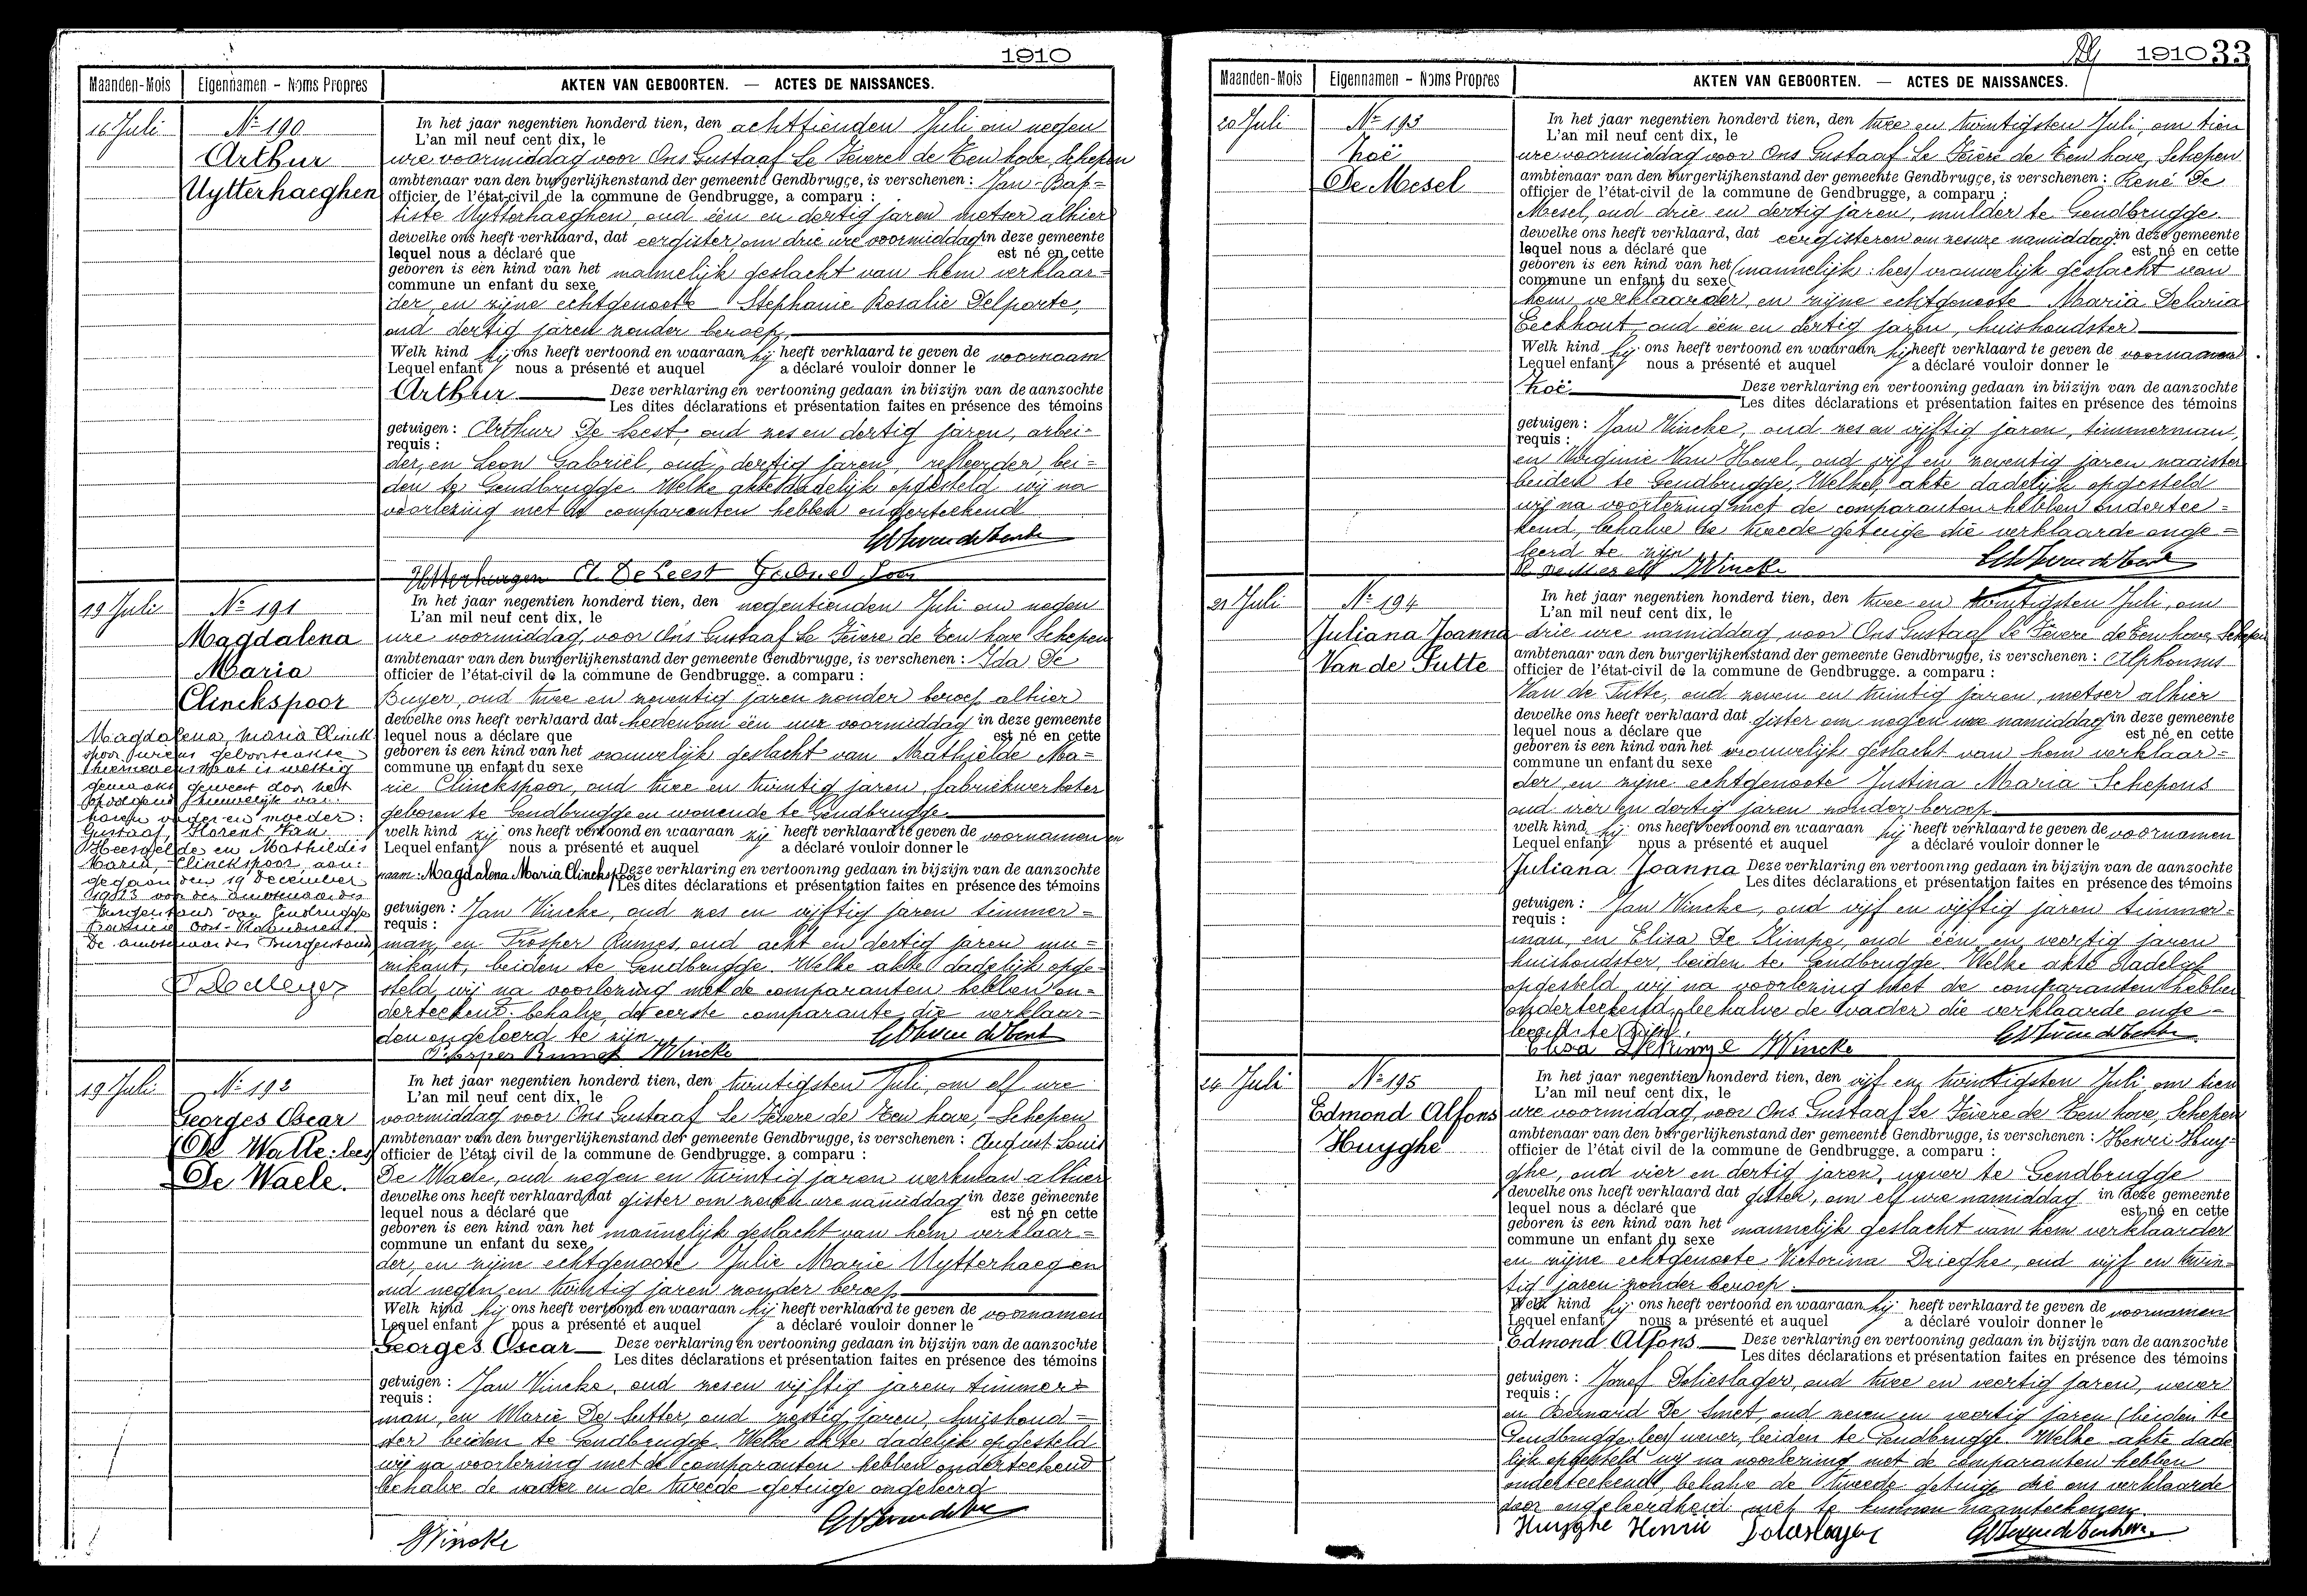 1910
Maanden-Mois Eigennamen - Noms Propres AKTEN VAN GEBOORTEN. — ACTES DE NAISSANCES.
16 Juli
Nº 190
Arthur
Uytterhaeghen
In het jaar negentien honderd tien, den achttienden Juli om negen
L'an mil neuf cent dix, le
ure voormiddag voor Ons Gustaaf Le Fèvere de Ten hove, Schepen
ambtenaar van den burgerlijkenstand der gemeente Gendbrugge, is verschenen : Jan-Bap=
officier de l'état-civil de la commune de Gendbrugge, a comparu :
tiste Uytterhaeghen, oud één en dertig jaren metser alhier
dewelke ons heeft verklaard, dat eergister, om drie ure voormiddag in deze gemeente
lequel nous a déclaré que est né en cette
geboren is een kind van het mannelijk geslacht van hem verklaar=
commune un enfant du sexe
der, en zijne echtgenoote Stephanie Rosalie Delporte,
oud dertig jaren zonder beroep,
Welk kind hij ons heeft vertoond en waaraan hij heeft verklaard te geven de voornaam
Lequel enfant nous a présenté et auquel a déclaré vouloir donner le
Arthur Deze verklaring en vertooning gedaan in bijzijn van de aanzochte
Les dites déclarations et présentation faites en présence des témoins
getuigen : Arthur De Leest, oud zes en dertig jaren, arbei=
requis :
der, en Leon Gabriël, oud dertig jaren, bei=
den te Gendbrugge. Welke akte dadelijk opgesteld wij na
voorlezing met de comparanten hebben onderteekend
A DeLeest Gabriel Leon
19 Juli
Nº 191
Magdalena
Maria
Clinckspoor
Magdalena, Maria Clinck
spoor wiens geboorteakte
hiernevens staat is wettig
gemaakt geweest door het
opvolgend huwelijk van
haren vader en moeder:
Gustaaf, Florent Van
Heesvelde en Mathildis
Maria, Clinckspoor, aan:
gegaan den 19 December
1913 voor den ambtenaar des
Burgerstand van Gendbrugge
Provincie Oost-Vlaanderen
De ambtenaar des Burgerstand,
In het jaar negentien honderd tien, den negentienden Juli om negen
L'an mil neuf cent dix, le
ure voormiddag, voor Ons Gustaaf Le Fèvere de Ten hove Schepen
ambtenaar van den burgerlijkenstand der gemeente Gendbrugge, is verschenen : Ida De
officier de l'état-civil de la commune de Gendbrugge. a comparu :
Buyer, oud twee en zeventig jaren zonder beroep alhier
dewelke ons heeft verklaard dat heden om één uur voormiddag in deze gemeente
lequel nous a déclare que est né en cette
geboren is een kind van het vrouwelijk geslacht van Mathielde Ma=
commune un enfant du sexe
rie Clinckspoor, oud twee en twintig jaren, fabriekwerkster
geboren te Gendbrugge en wonende te Gendbrugge
welk kind zij ons heeft vertoond en waaraan zij heeft verklaard te geven de voornamen en
Lequel enfant nous a présenté et auquel a déclaré vouloir donner le
naam: Magdalena Maria Clinckspoor Deze verklaring en vertooning gedaan in bijzijn van de aanzochte
Les dites déclarations et présentation faites en présence des témoins
getuigen : Jan Vincke, oud zes en vijftig jaren timmer=
requis :
man, en Prosper Rumes, oud acht en dertig jaren mu=
zikant, beiden te Gendbrugge. Welke akte dadelijk opge=
steld wij na voorlezing met de comparanten hebben on=
derteekend behalve de eerste comparante die verklaar=
den ongeleerd te zijn
Prosper Rumes JVincke
19 Juli
Nº 192
Georges Oscar
(De Walle: lees)
De Waele.
In het jaar negentien honderd tien, den twintigsten Juli, om elf ure
L'an mil neuf cent dix, le
voormiddag voor Ons Gustaaf Le Fèvere de Ten hove, Schepen
ambtenaar van den burgerlijkenstand der gemeente Gendbrugge, is verschenen : August Louis
officier de l'état civil de la commune de Gendbrugge. a comparu :
De Waele, oud negen en twintig jaren werkman alhier
dewelke ons heeft verklaard dat gister om zeven ure namiddag in deze gemeente
lequel nous a déclaré que est né en cette
geboren is een kind van het mannelijk geslacht van hem verklaar=
commune un enfant du sexe
der, en zijne echtgenoote Julie Marie Uytterhaegen
oud negen en twintig jaren zonder beroep
Welk kind hij ons heeft vertoond en waaraan hij heeft verklaard te geven de voornamen
Lequel enfant nous a présenté et auquel a déclaré vouloir donner le
Georges Oscar Deze verklaring en vertooning gedaan in bijzijn van de aanzochte
Les dites déclarations et présentation faites en présence des témoins
getuigen : Jan Vincke, oud zes en vijftig jaren timmer=
requis :
man, en Marie De Sutter, oud zestig jaren, huishoud=
ster) beiden te Gendbrugge. Welke akte dadelijk opgesteld
wij na voorlezing met de comparanten hebben onderteekend
behalve de vader en de tweede getuige ongeleerd
JVincke
1910 33
Maanden-Mois Eigennamen - Noms Propres AKTEN VAN GEBOORTEN. — ACTES DE NAISSANCES.
20 Juli
Nº 193
Zoë
De Mesel
In het jaar negentien honderd tien, den twee en twintigsten Juli, om tien
L'an mil neuf cent dix, le
ure voormiddag voor Ons Gustaaf Le Fèvere de Ten hove, Schepen
ambtenaar van den burgerlijkenstand der gemeente Gendbrugge, is verschenen : René De
officier de l'état-civil de la commune de Gendbrugge, a comparu :
Mesel, oud drie en dertig jaren, mulder te Gendbrugge.
dewelke ons heeft verklaard, dat eergisteren om zes ure namiddag in deze gemeente
lequel nous a déclaré que est né en cette
geboren is een kind van het (mannelijk: lees) vrouwelijk geslacht van
commune un enfant du sexe
hem verklaarder, en zijne echtgenoote Maria Delaria
Eeckhout, oud één en dertig jaren, huishoudster
Welk kind hij ons heeft vertoond en waaraan hij heeft verklaard te geven de voornaam
Lequel enfant nous a présenté et auquel a déclaré vouloir donner le
Zoë Deze verklaring en vertooning gedaan in bijzijn van de aanzochte
Les dites déclarations et présentation faites en présence des témoins
getuigen : Jan Vincke, oud zes en vijftig jaren, timmerman,
requis :
en Virginie Van Hevel, oud vijf en zeventig jaren naaister
beiden te Gendbrugge. Welke akte dadelijk opgesteld
wij na voorlezing met de comparanten hebben ondertee=
kend, behalve de tweede getuige die verklaarde onge=
leerd te zijn
JVincke
21 Juli
Nº 194
Juliana Joanna
Van de Putte
In het jaar negentien honderd tien, den twee en twintigsten Juli, om
L'an mil neuf cent dix, le
drie ure namiddag, voor Ons Gustaaf Le Fèvere de Ten hove, Schepen
ambtenaar van den burgerlijkenstand der gemeente Gendbrugge, is verschenen : Alphonsus
officier de l'état-civil de la commune de Gendbrugge. a comparu :
Van de Putte, oud zeven en twintig jaren, metser alhier
dewelke ons heeft verklaard dat gister om negen ure namiddag in deze gemeente
lequel nous a déclare que est né en cette
geboren is een kind van het vrouwelijk geslacht van hem verklaar=
commune un enfant du sexe
der, en zijne echtgenoote Justina Maria Schepens
oud vier en dertig jaren zonder beroep
welk kind hij ons heeft vertoond en waaraan hij heeft verklaard te geven de voornamen
Lequel enfant nous a présenté et auquel a déclaré vouloir donner le
Juliana Joanna Deze verklaring en vertooning gedaan in bijzijn van de aanzochte
Les dites déclarations et présentation faites en présence des témoins
getuigen : Jan Vincke, oud vijf en vijftig jaren timmer=
requis :
man, en Elisa De Kimpe, oud één en veertig jaren
huishoudster, beiden te Gendbrugge. Welke akte dadelijk
opgesteld, wij na voorlezing met de comparanten hebben
onderteekend, behalve de vader die verklaarde onge=
leerd te zijn.
Elisa DeKimpe JVincke
24 Juli
Nº 195
Edmond Alfons
Huyghe
In het jaar negentien honderd tien, den vijf en twintigsten Juli om tien
L'an mil neuf cent dix, le
ure voormiddag, voor Ons Gustaaf Le Fèvere de Ten hove, Schepen
ambtenaar van den burgerlijkenstand der gemeente Gendbrugge, is verschenen : Henri Huy=
officier de l'état civil de la commune de Gendbrugge. a comparu :
ghe, oud vier en dertig jaren, wever te Gendbrugge
dewelke ons heeft verklaard dat gister, om elf ure namiddag in deze gemeente
lequel nous a déclaré que est né en cette
geboren is een kind van het mannelijk geslacht van hem verklaarder
commune un enfant du sexe
en zijne echtgenoote Victorina Drieghe, oud vijf en twin=
tig jaren zonder beroep.
Welk kind hij ons heeft vertoond en waaraan hij heeft verklaard te geven de voornamen
Lequel enfant nous a présenté et auquel a déclaré vouloir donner le
Edmond Alfons Deze verklaring en vertooning gedaan in bijzijn van de aanzochte
Les dites déclarations et présentation faites en présence des témoins
getuigen : Jozef Delieslager, oud twee en veertig jaren, wever
requis :
en Bernard De Smet, oud zeven en veertig jaren (beiden te
Gendbrugge: lees) wever, beiden te Gendbrugge. Welke akte dade
lijk opgesteld wij na voorlezing met de comparanten hebben
onderteekend, behalve de tweede getuige die ons verklaarde
door ongeleerdheid niet te kunnen naamteekenen.
Huyghe Henri